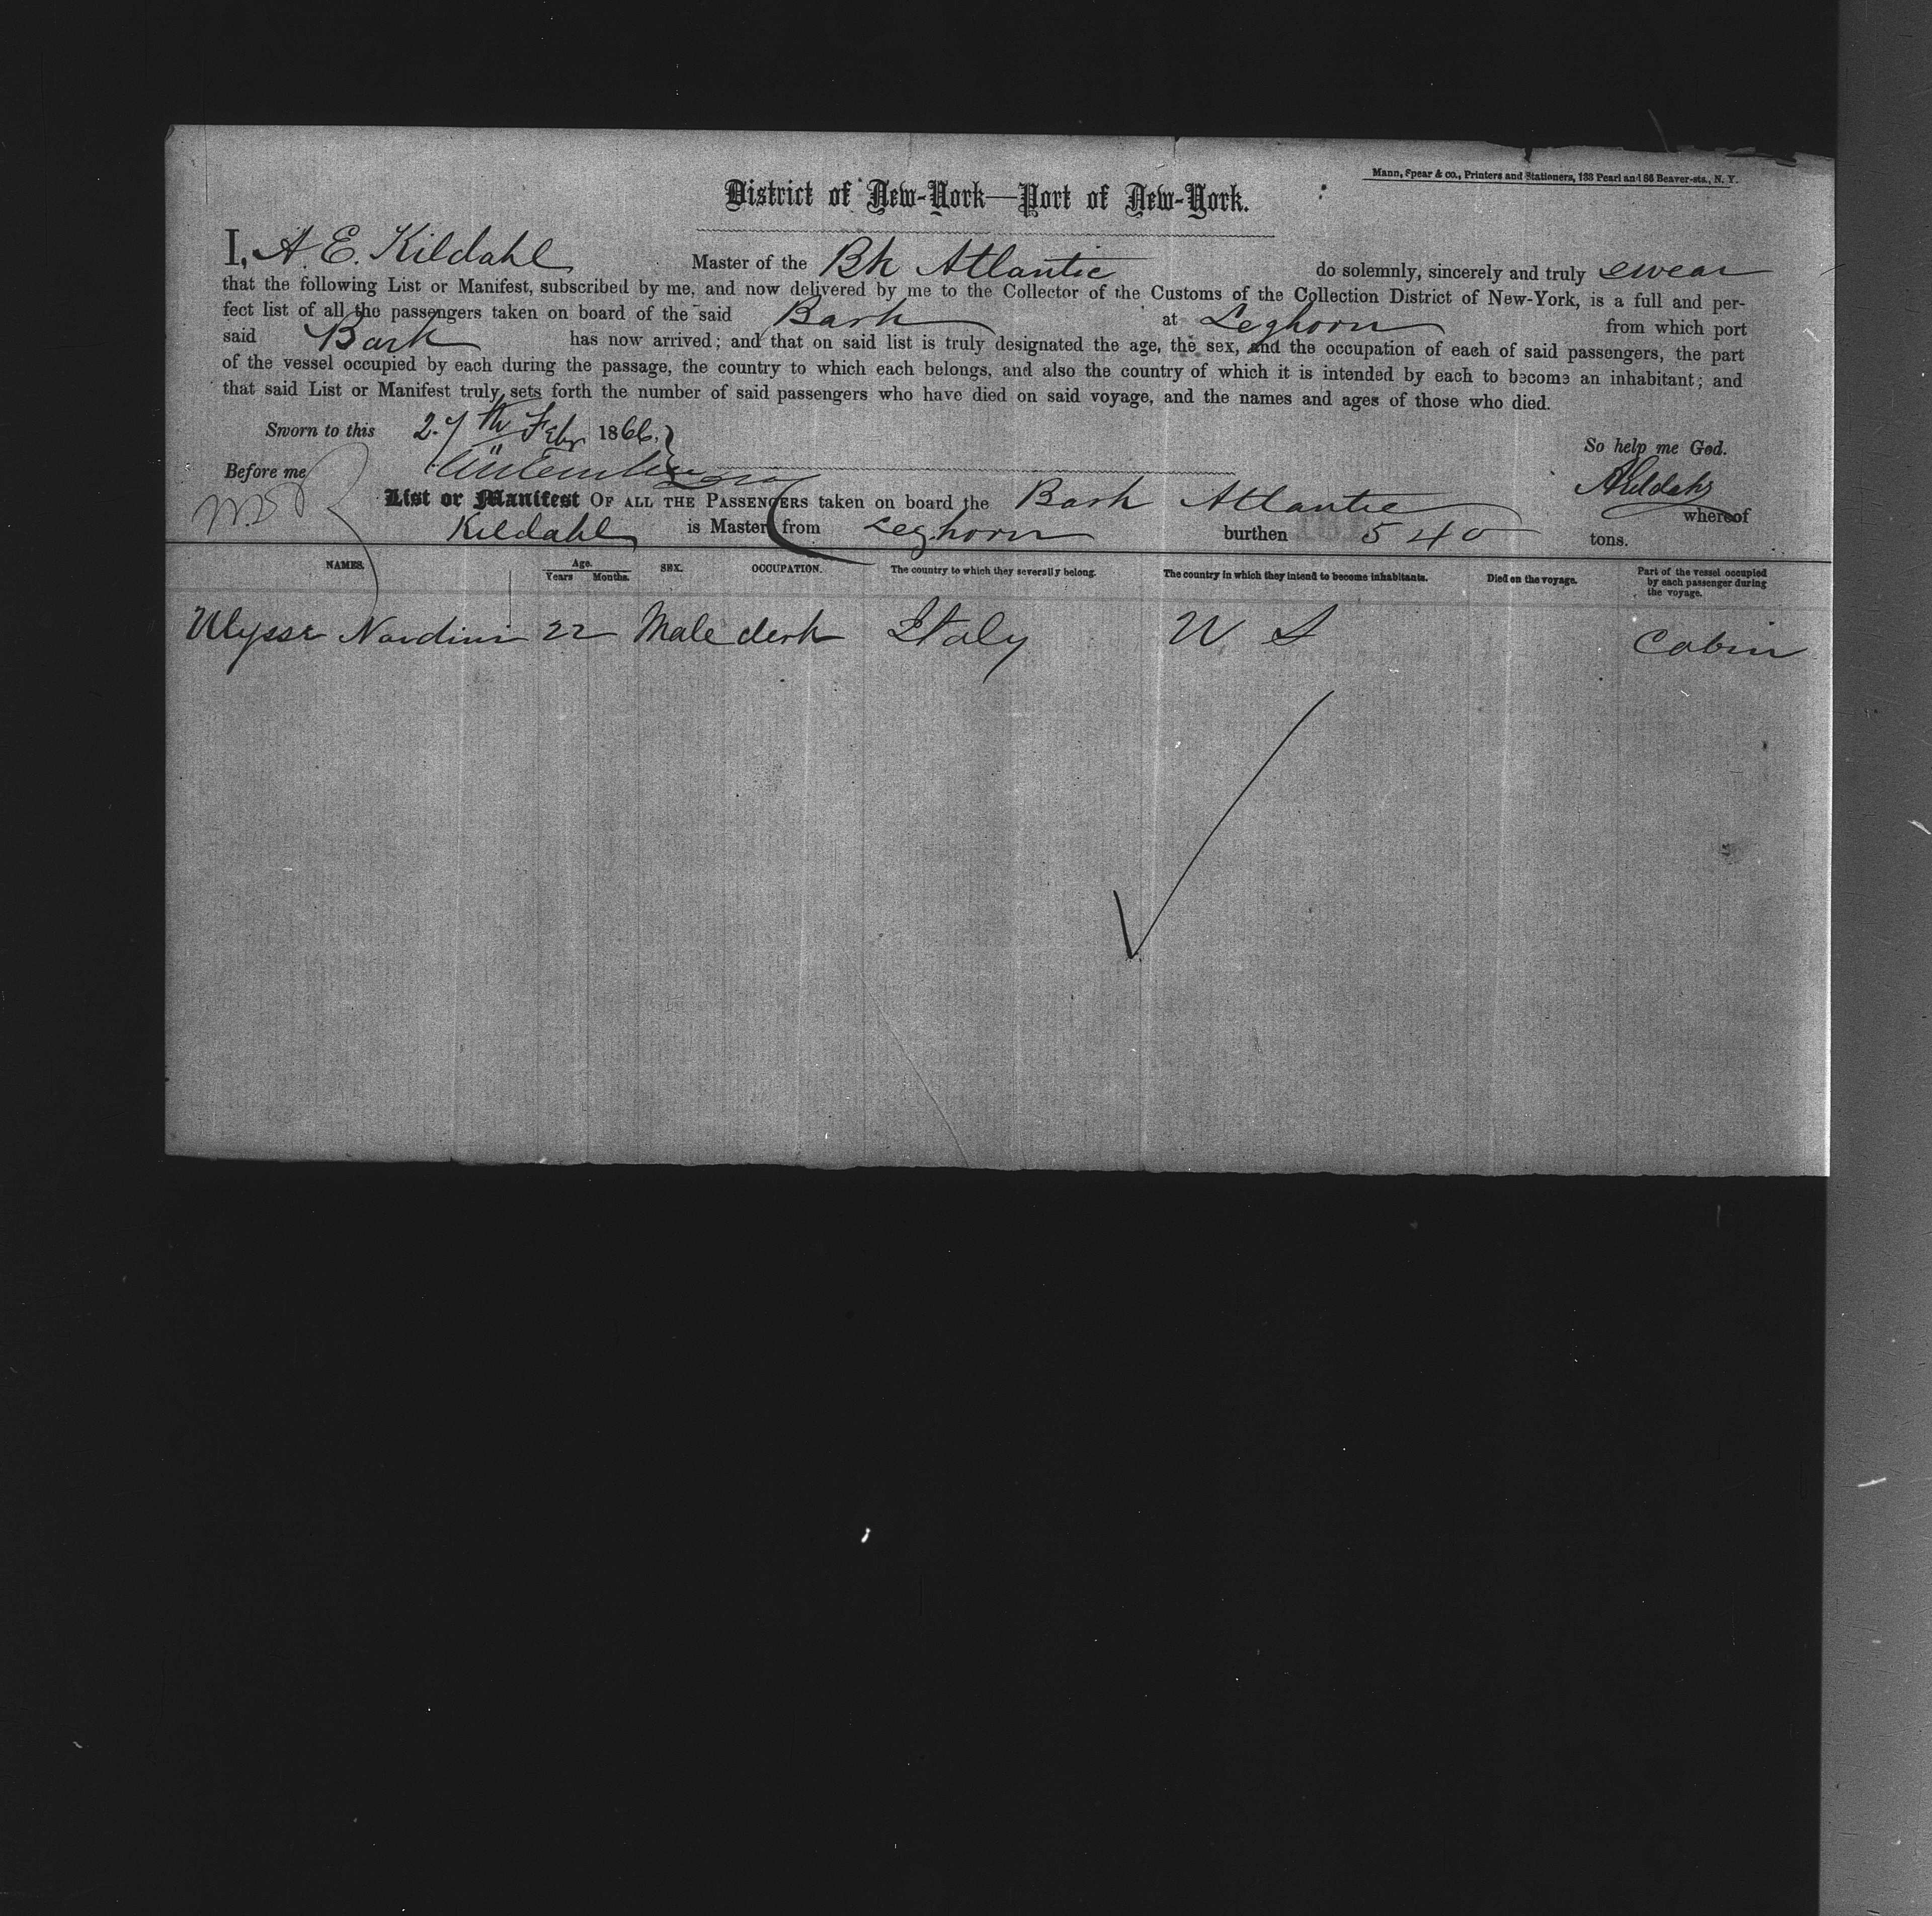 Mann, Spear & co., Printers and Stationers, 133 Pearl and 86 Beaver-sts., N. Y.
District of New-York—Port of New-York.
I, A. E. Kildahl Master of the Bk Atlantic do solemnly, sincerely and truly swear
that the following List or Manifest, subscribed by me, and now delivered by me to the Collector of the Customs of the Collection District of New-York, is a full and per-
fect list of all the passengers taken on board of the said Bark at Leghorn from which port
said Bark has now arrived; and that on said list is truly designated the age, the sex, and the occupation of each of said passengers, the part
of the vessel occupied by each during the passage, the country to which each belongs, and also the country of which it is intended by each to become an inhabitant; and
that said List or Manifest truly sets forth the number of said passengers who have died on said voyage, and the names and ages of those who died.
Sworn to this 27th Febr 1866.
So help me God.
Before me
AKildahl
List or Manifest OF ALL THE PASSENGERS taken on board the Bark Atlantic whereof
Kildahl is Master from Leghorn burthen 540 tons.
NAMES. Age. Years Months. SEX. OCCUPATION. The country to which they severally belong. The country in which they intend to become inhabitants. Died on the voyage. Part of the vessel occupied by each passenger during the voyage.
Ulysse Nardini 22 Male clerk Italy U S Cabin